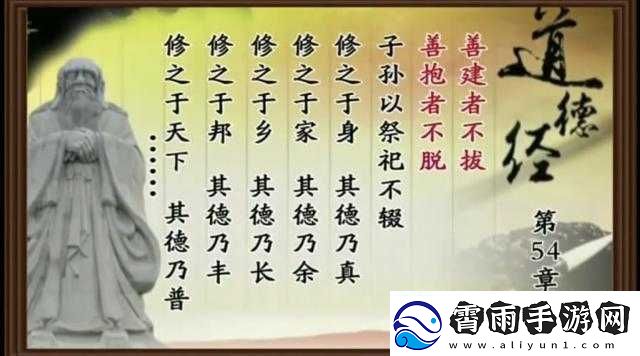 道德经
第54章
善建者不拔
善抱者不脱
子孙以祭祀不辍
修之于身 其德乃真
修之于家 其德乃余
修之于乡 其德乃长
修之于邦 其德乃丰
修之于天下 其德乃普
……
霄雨手游网
www.aliyun1.com